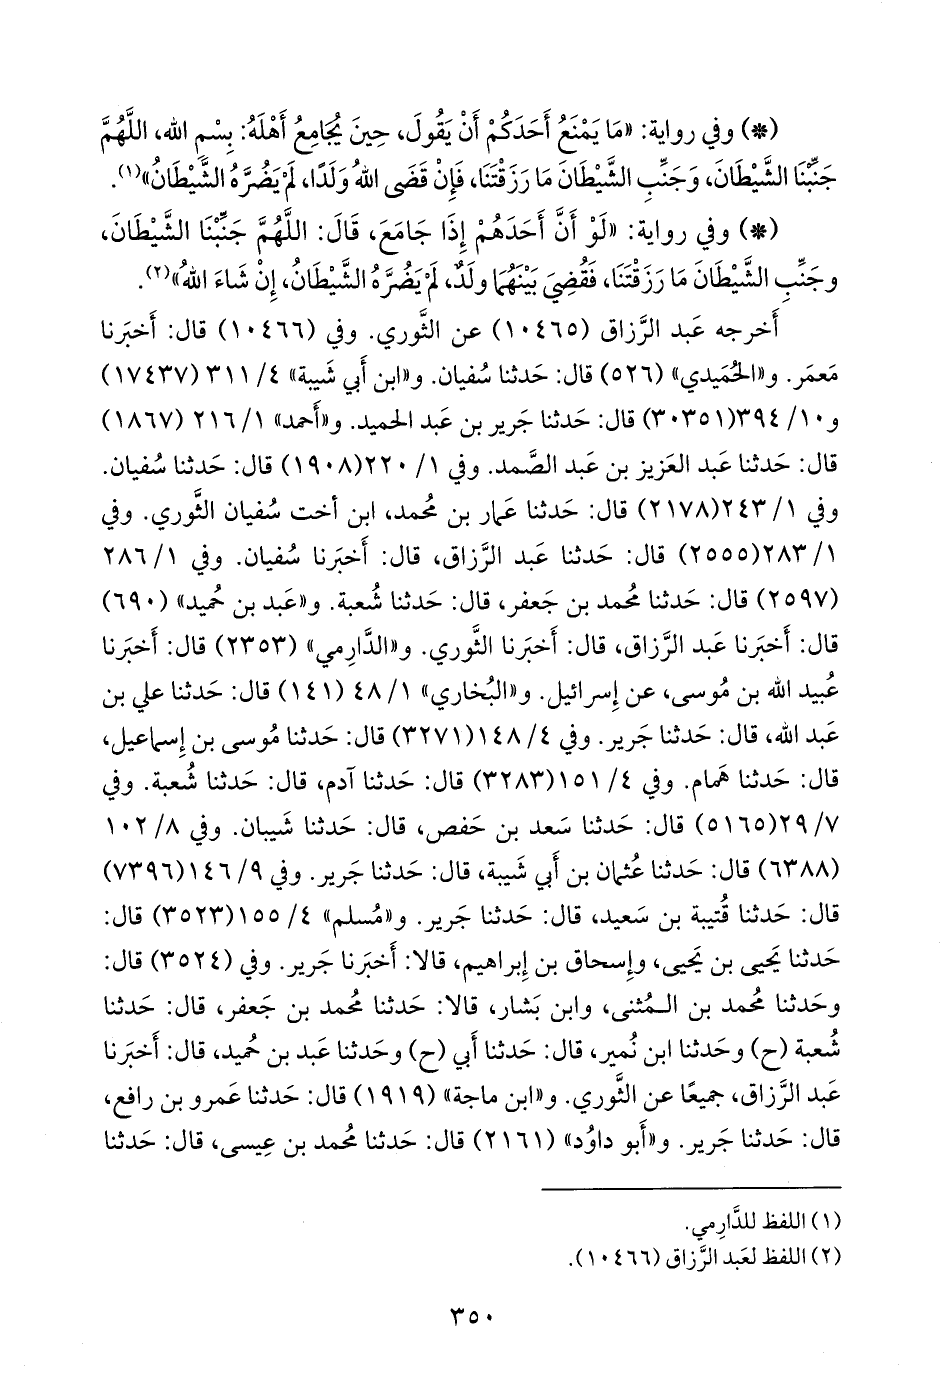 (*) وفي رواية: «مَا يَمْنَعُ أَحَدَكُمْ أَنْ يَقُولَ، حِينَ يُجَامِعُ أَهْلَهُ: بِسْمِ الله، اللَّهُمَّ
جَنِّبْنَا الشَّيْطَانَ، وَجَنِّبِ الشَّيْطَانَ مَا رَزَقْتَنَا، فَإِنْ قَضَى اللهُ وَلَدًا، لَمْ يَضُرَّهُ الشَّيْطَانُ»(١).
(*) وفي رواية: «لَوْ أَنَّ أَحَدَهُمْ إِذَا جَامَعَ، قَالَ: اللَّهُمَّ جَنِّبْنَا الشَّيْطَانَ،
وجَنِّبِ الشَّيْطَانَ مَا رَزَقْتَنَا، فَقُضِيَ بَيْنَهُمَا ولَدٌ، لَمْ يَضُرَّهُ الشَّيْطَانُ، إِنْ شَاءَ اللهُ»(٢).
أَخرجه عَبد الرَّزاق (١٠٤٦٥) عن الثَّوري. وفي (١٠٤٦٦) قال: أَخبَرنا
مَعمَر. و«الحُمَيدي» (٥٢٦) قال: حَدثنا سُفيان. و«ابن أَبي شَيبة» ٤/ ٣١١ (١٧٤٣٧)
و١٠/ ٣٩٤(٣٠٣٥١) قال: حَدثنا جَرير بن عَبد الحميد. و«أَحمد» ١/ ٢١٦ (١٨٦٧)
قال: حَدثنا عَبد العزيز بن عَبد الصَّمد. وفي ١/ ٢٢٠(١٩٠٨) قال: حَدثنا سُفيان.
وفي ١/ ٢٤٣(٢١٧٨) قال: حَدثنا عَمار بن مُحمد، ابن أُخت سُفيان الثَّوري. وفي
١/ ٢٨٣(٢٥٥٥) قال: حَدثنا عَبد الرَّزاق، قال: أَخبَرنا سُفيان. وفي ١/ ٢٨٦
(٢٥٩٧) قال: حَدثنا مُحمد بن جَعفر، قال: حَدثنا شُعبة. و«عَبد بن حُميد» (٦٩٠)
قال: أَخبَرنا عَبد الرَّزاق، قال: أَخبَرنا الثَّوري. و«الدَّارِمي» (٢٣٥٣) قال: أَخبَرنا
عُبيد الله بن مُوسى، عن إِسرائيل. و«البُخاري» ١/ ٤٨ (١٤١) قال: حَدثنا علي بن
عَبد الله، قال: حَدثنا جَرير. وفي ٤/ ١٤٨(٣٢٧١) قال: حَدثنا مُوسى بن إِسماعيل،
قال: حَدثنا هَمام. وفي ٤/ ١٥١(٣٢٨٣) قال: حَدثنا آدم، قال: حَدثنا شُعبة. وفي
٧/ ٢٩(٥١٦٥) قال: حَدثنا سَعد بن حَفص، قال: حَدثنا شَيبان. وفي ٨/ ١٠٢
(٦٣٨٨) قال: حَدثنا عُثمان بن أَبي شَيبة، قال: حَدثنا جَرير. وفي ٩/ ١٤٦(٧٣٩٦)
قال: حَدثنا قُتيبة بن سَعيد، قال: حَدثنا جَرير. و«مُسلم» ٤/ ١٥٥(٣٥٢٣) قال:
حَدثنا يَحيى بن يَحيى، وإِسحاق بن إِبراهيم، قالا: أَخبَرنا جَرير. وفي (٣٥٢٤) قال:
وحَدثنا مُحمد بن الـمُثنى، وابن بَشار، قالا: حَدثنا مُحمد بن جَعفر، قال: حَدثنا
شُعبة (ح) وحَدثنا ابن نُمير، قال: حَدثنا أَبي (ح) وحَدثنا عَبد بن حُميد، قال: أَخبَرنا
عَبد الرَّزاق، جميعًا عن الثَّوري. و«ابن ماجة» (١٩١٩) قال: حَدثنا عَمرو بن رافع،
قال: حَدثنا جَرير. و«أَبو داوُد» (٢١٦١) قال: حَدثنا مُحمد بن عِيسى، قال: حَدثنا
(١) اللفظ للدَّارِمي.
(٢) اللفظ لعَبد الرَّزاق (١٠٤٦٦).
٣٥٠